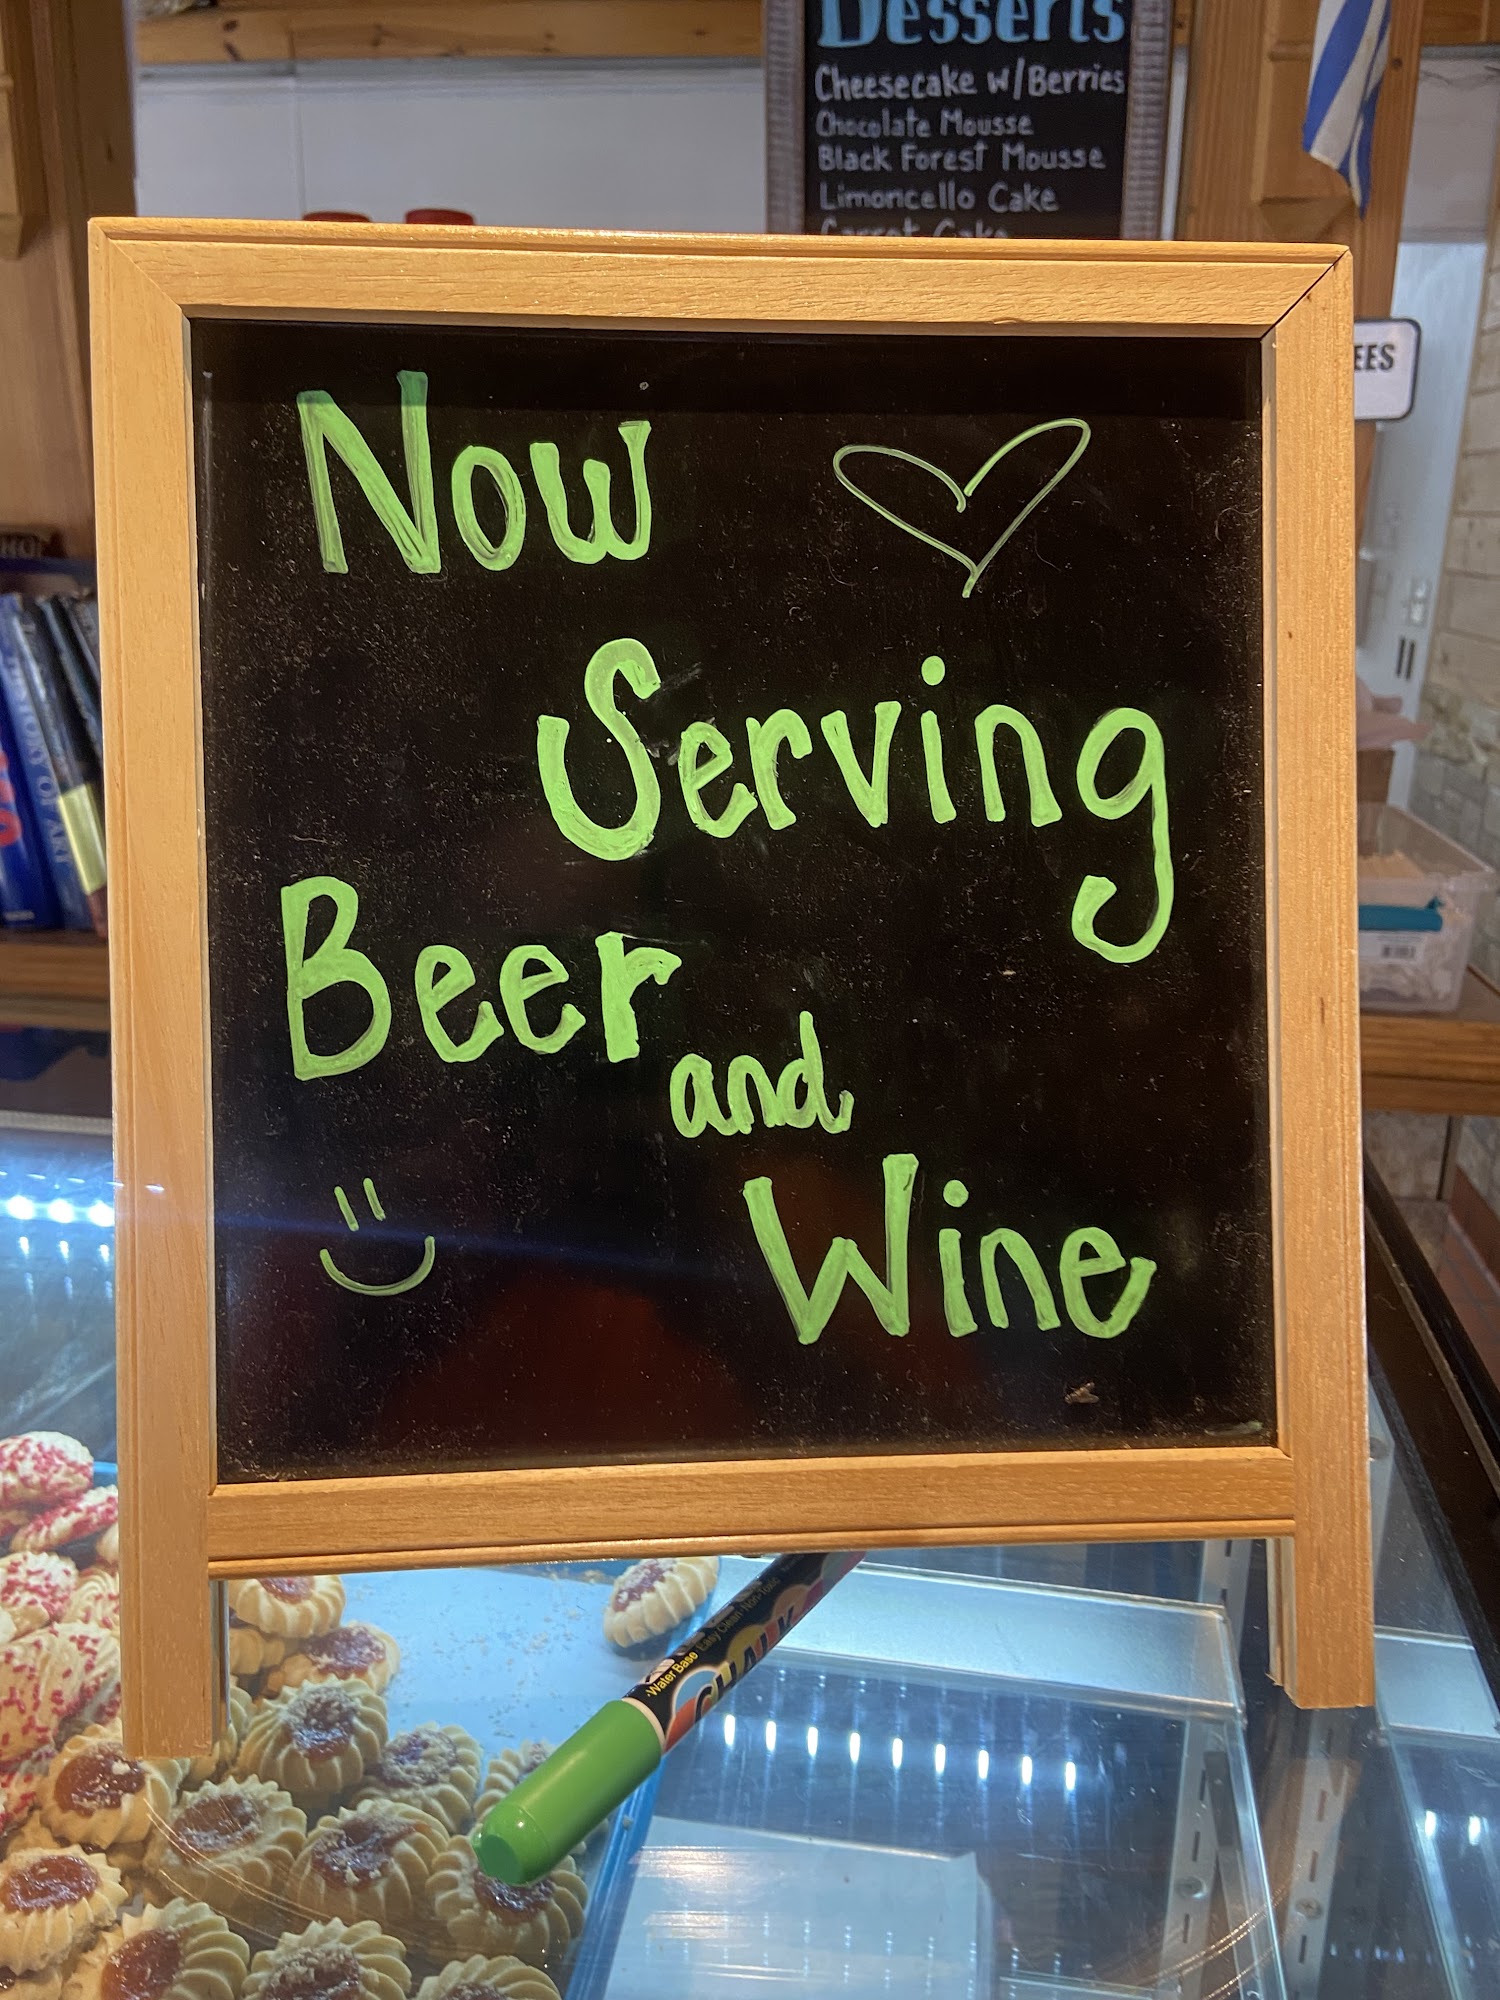 Desserts
Cheesecake w/Berries
Chocolate Mousse
Black Forest Mousse
Limoncello Cake
Carrot Cake
EES
Now
Serving
Beer
and
Wine
HISTORY OF ART
Water Base Easy Clean Non-Toxic
CHALK